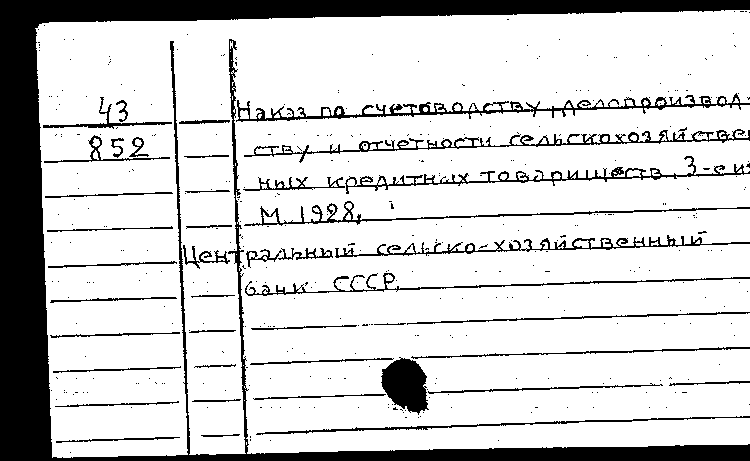 43
852
Наказ по счетоводству, делопроизвод-
ству и отчетности сельскохозяйствен
ных кредитных товариществ. 3-е из
М. 1928.
Центральный сельско-хозяйственный
банк СССР.